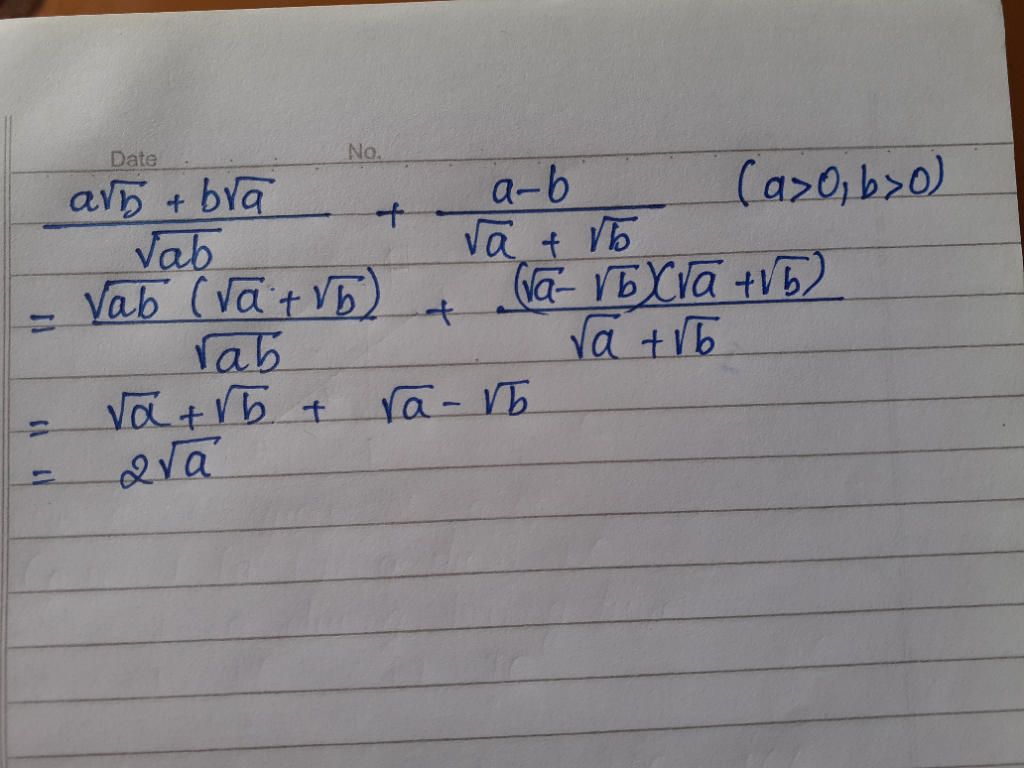 Date No.
a√b + b√a / √ab + a-b / √a + √b (a>0, b>0)
= √ab (√a + √b) / √ab + (√a - √b)(√a + √b) / √a + √b
= √a + √b + √a - √b
= 2√a